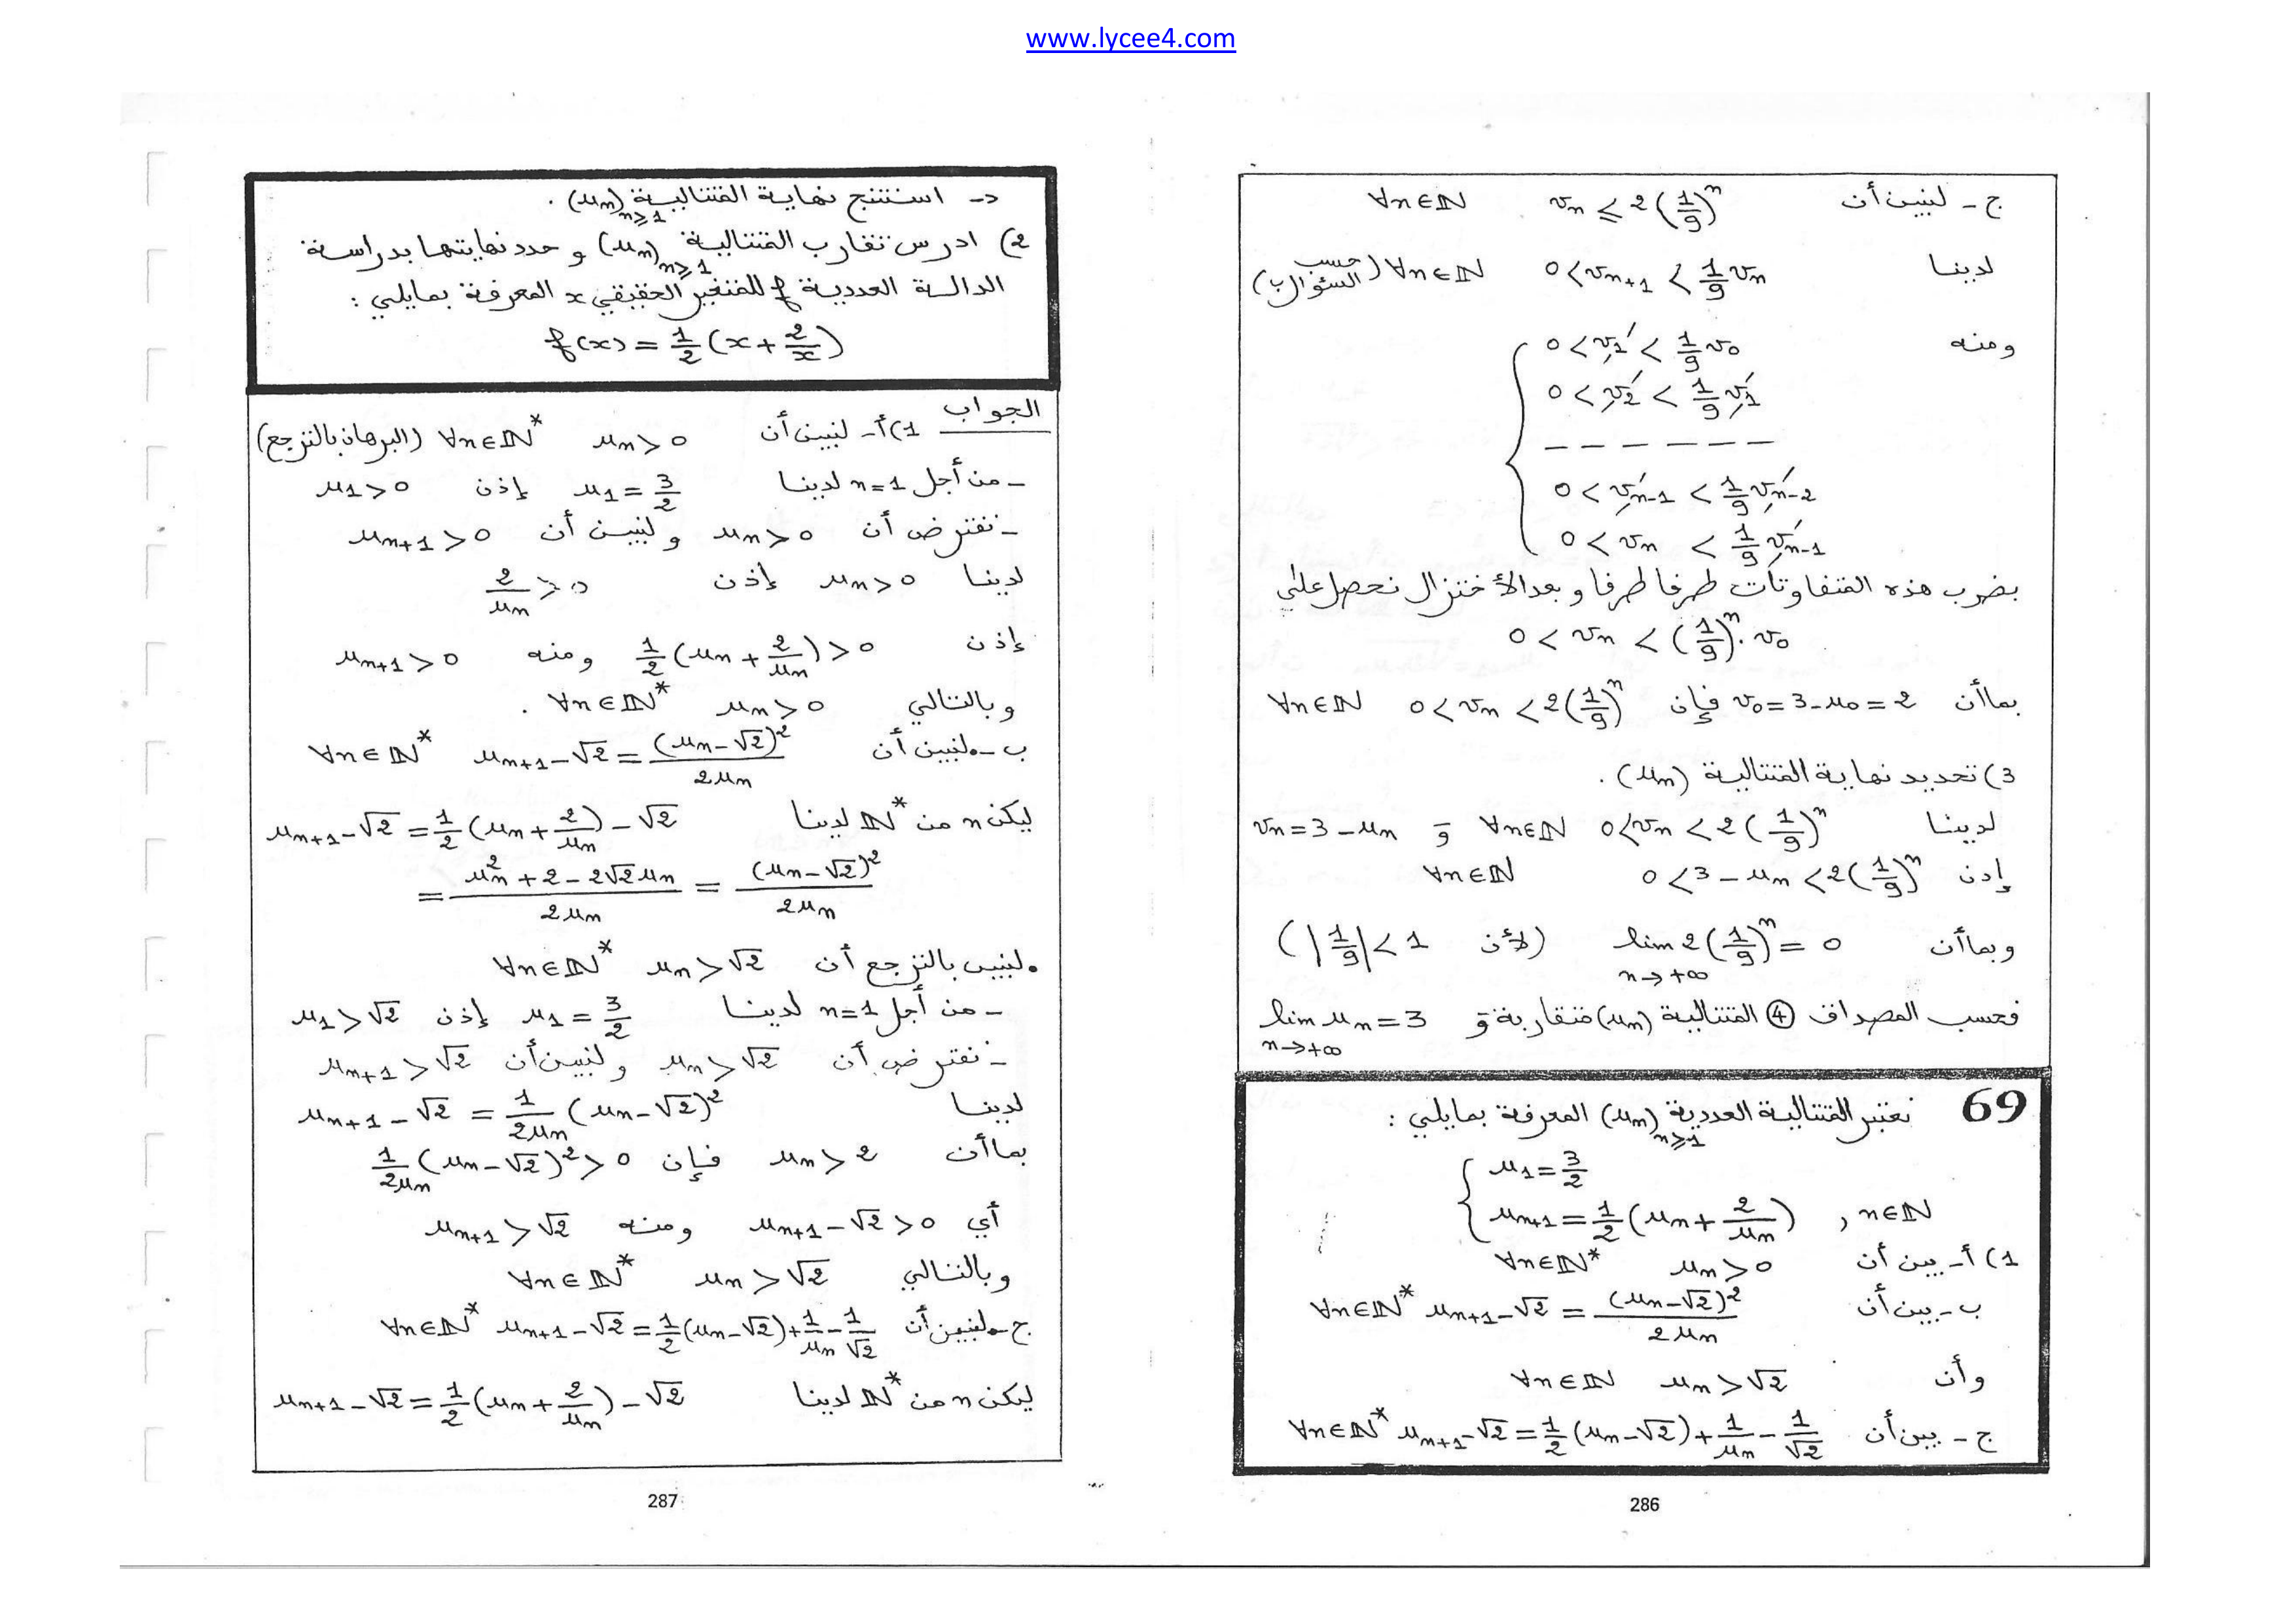 www.lycee4.com
ج - لنبين أن vn ≤ 2(1/9)^n ∀n∈ℕ
لدينا 0 < vn+1 < 1/9 vn ∀n∈ℕ (حسب السؤال ب)
ومنه 0 < v1 < 1/9 v0
0 < v2 < 1/9 v1
- - - - - -
0 < vn-1 < 1/9 vn-2
0 < vn < 1/9 vn-1
بضرب هذه المتفاوتات طرفا طرفا و بعد الأختزال نحصل على
0 < vn < (1/9)^n . v0
بما أن v0 = 3 - u0 = 2 فإن 0 < vn < 2(1/9)^n ∀n∈ℕ
3) تحديد نهاية المتتالية (un) .
لدينا 0 < vn < 2(1/9)^n ∀n∈ℕ و vn = 3 - un
إذن 0 < 3 - un < 2(1/9)^n ∀n∈ℕ
وبما أن lim 2(1/9)^n = 0 (لأن |1/9| < 1)
n→+∞
فحسب المصداق ④ المتتالية (un) متقاربة و lim un = 3
n→+∞
69 نعتبر المتتالية العددية (un)n≥1 المعرفة بمايلي :
u1 = 3/2
un+1 = 1/2 (un + 2/un) , n∈ℕ
1) أ - بين أن un > 0 ∀n∈ℕ*
ب - بين أن un+1 - √2 = (un - √2)²/2un ∀n∈ℕ*
وأن un > √2 ∀n∈ℕ
ج - بين أن un+1 - √2 = 1/2 (un - √2) + 1/un - 1/√2 ∀n∈ℕ*
286
د - استنتج نهاية المتتالية (un)n≥1 .
2) ادرس تقارب المتتالية (un)n≥1 و حدد نهايتها بدراسة
الدالة العددية f للمتغير الحقيقي x المعرفة بمايلي :
f(x) = 1/2 (x + 2/x)
الجواب 1) أ - لنبين أن un > 0 ∀n∈ℕ* (البرهان بالترجع)
- من أجل n=1 لدينا u1 = 3/2 إذن u1 > 0
- نفترض أن un > 0 و لنبين أن un+1 > 0
لدينا un > 0 إذن 2/un > 0
إذن 1/2 (un + 2/un) > 0 ومنه un+1 > 0
وبالتالي un > 0 ∀n∈ℕ* .
ب - • لنبين أن un+1 - √2 = (un - √2)²/2un ∀n∈ℕ*
ليكن n من ℕ* لدينا un+1 - √2 = 1/2 (un + 2/un) - √2
= (un² + 2 - 2√2 un)/2un = (un - √2)²/2un
• لنبين بالترجع أن un > √2 ∀n∈ℕ*
- من أجل n=1 لدينا u1 = 3/2 إذن u1 > √2
- نفترض أن un > √2 و لنبين أن un+1 > √2
لدينا un+1 - √2 = 1/2un (un - √2)²
بما أن un > 2 فإن 1/2un (un - √2)² > 0
أي un+1 - √2 > 0 ومنه un+1 > √2
وبالتالي un > √2 ∀n∈ℕ*
ج - • لنبين أن un+1 - √2 = 1/2 (un - √2) + 1/un - 1/√2 ∀n∈ℕ*
ليكن n من ℕ* لدينا un+1 - √2 = 1/2 (un + 2/un) - √2
287